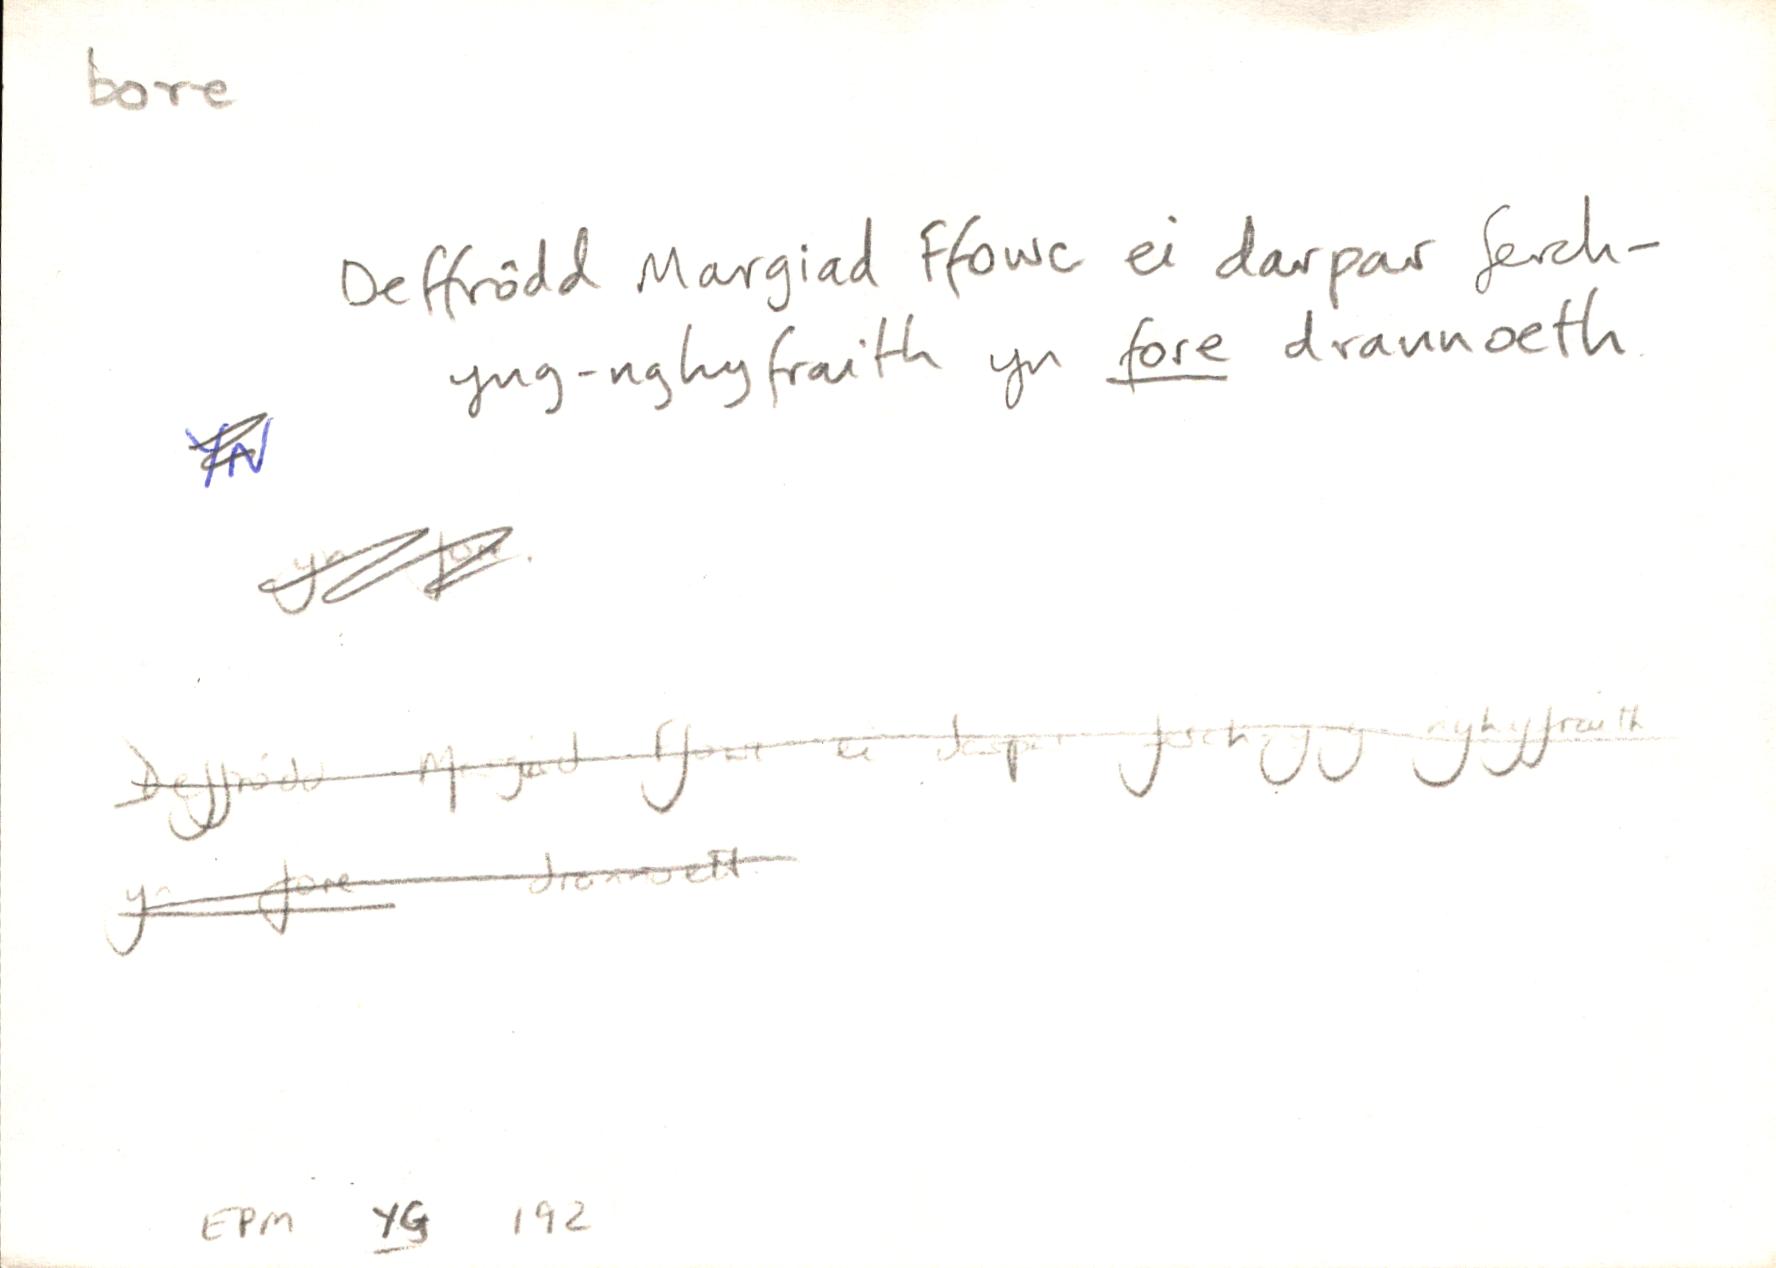 bore
Deffrôdd Margiad Ffowc ei darpar ferch-
yng-nghyfraith yn fore drannoeth.
YN
yn fore.
Deffrôdd Margiad Ffowc ei darpar ferch yng nghyfraith
yn fore drannoeth.
EPM YG 192